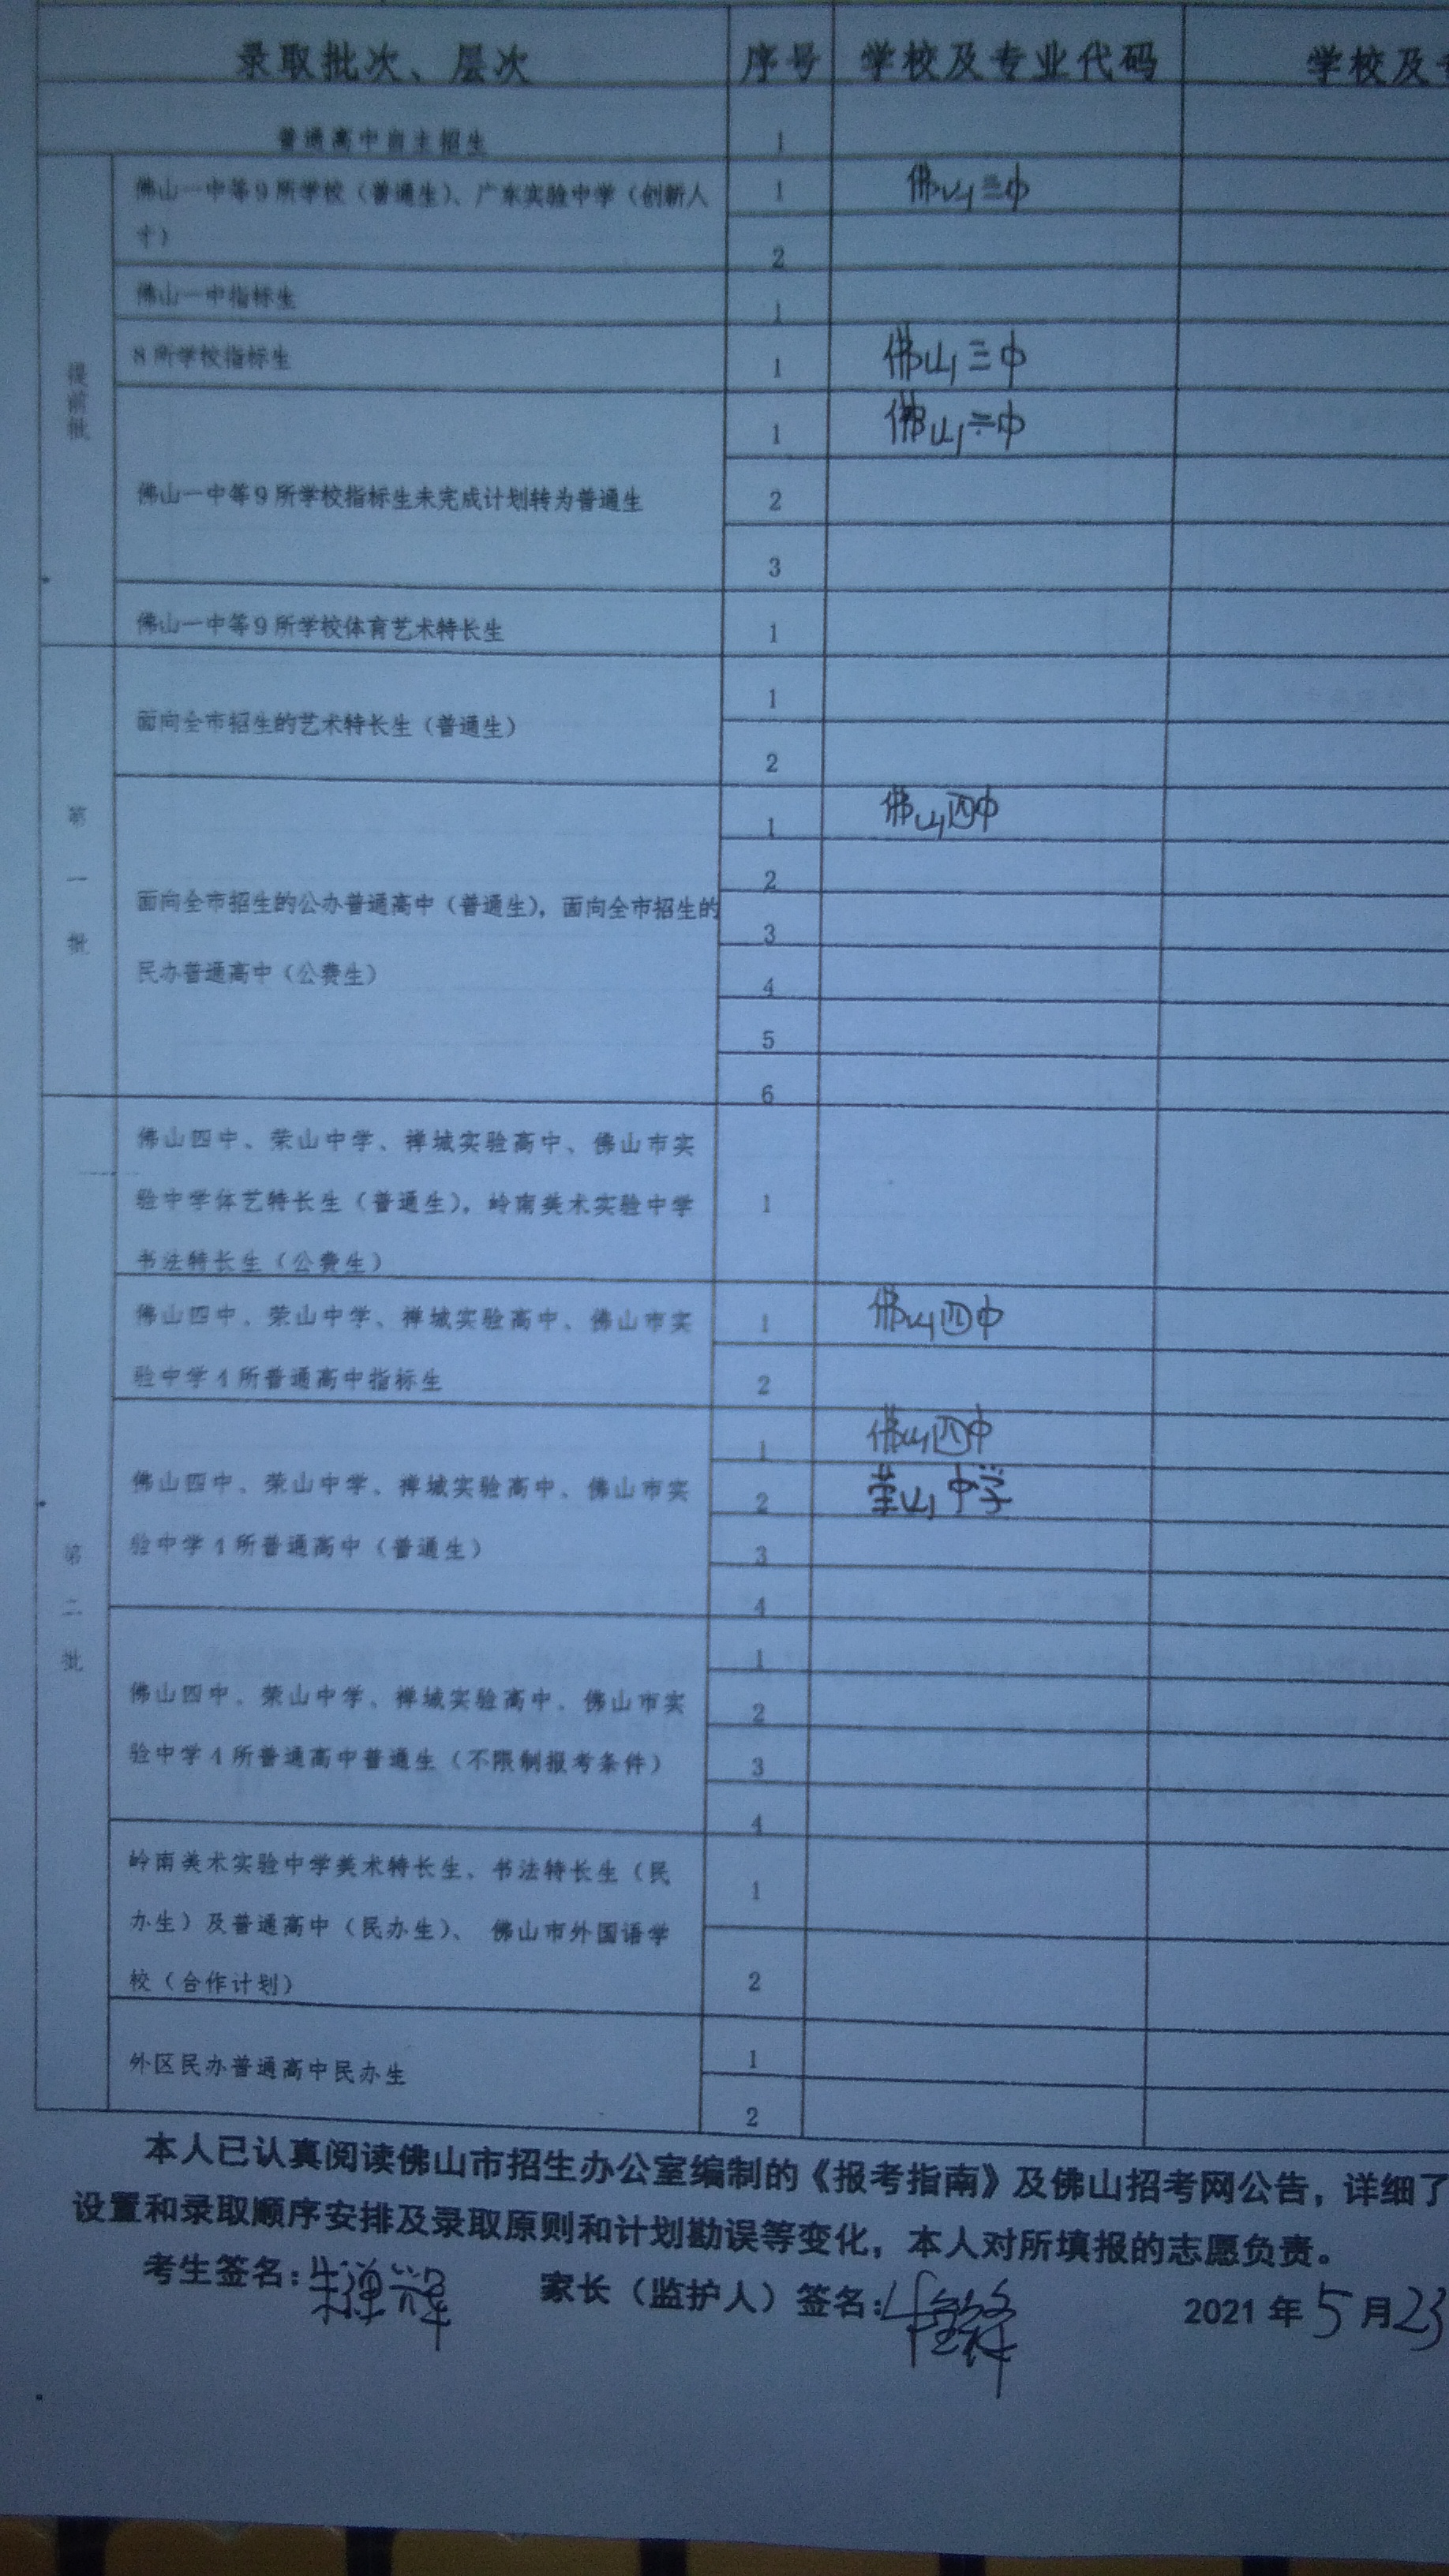 录取批次、层次 序号 学校及专业代码 学校及
普通高中自主招生 1
提前批
佛山一中等9所学校（普通生）、广东实验中学（创新人 1 佛山三中
才） 2
佛山一中指标生 1
8所学校指标生 1 佛山三中
1 佛山三中
佛山一中等9所学校指标生未完成计划转为普通生 2
3
佛山一中等9所学校体育艺术特长生 1
第一批
1
面向全市招生的艺术特长生（普通生）
2
1 佛山四中
2
面向全市招生的公办普通高中（普通生），面向全市招生的
3
民办普通高中（公费生）
4
5
6
第二批
佛山四中、荣山中学、禅城实验高中、佛山市实
验中学体艺特长生（普通生），岭南美术实验中学 1
书法特长生（公费生）
佛山四中、荣山中学、禅城实验高中、佛山市实 1 佛山四中
验中学4所普通高中指标生 2
1 佛山四中
佛山四中、荣山中学、禅城实验高中、佛山市实 2 荣山中学
验中学4所普通高中（普通生） 3
4
1
佛山四中、荣山中学、禅城实验高中、佛山市实 2
验中学4所普通高中普通生（不限制报考条件） 3
4
岭南美术实验中学美术特长生、书法特长生（民 1
办生）及普通高中（民办生）、 佛山市外国语学
校（合作计划） 2
外区民办普通高中民办生 1
2
本人已认真阅读佛山市招生办公室编制的《报考指南》及佛山招考网公告，详细了
设置和录取顺序安排及录取原则和计划勘误等变化，本人对所填报的志愿负责。
考生签名： 家长（监护人）签名： 2021年5月23